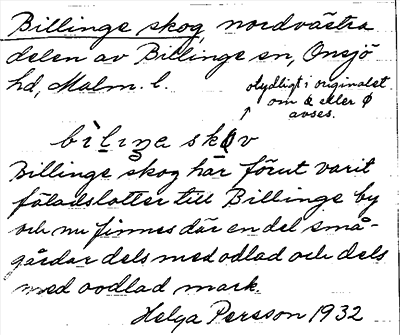 Billinge skog, nordvästra
delen av Billinge sn, Onsjö
hd, Malm. l.
otydligt i originalet
om å eller ø
avses.
bìliŋa skøv
Billinge skog har förut varit
fäladslotter till Billinge by
och nu finnes där en del små-
gårdar dels med odlad och dels
med oodlad mark.
Helga Persson 1932